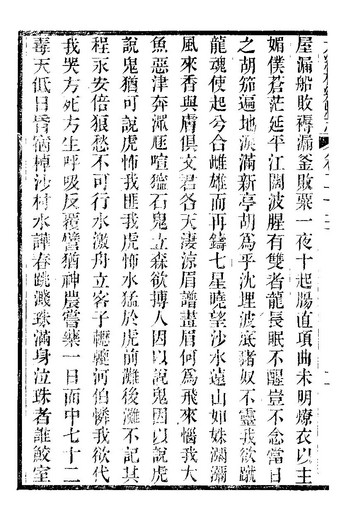 屋漏船敗得漏釜敗粟一夜十起腸直項曲未明燎衣以主
媚僕蒼茫延平江闊波腥有雙者龍長眠不醒豈不念當日
之胡笳遍地淚滿新亭胡為乎沈埋波底瑇奴不靈我欲蹴
龍魂使起兮合雌雄而再鑄七星曉望沙水遠山如姝溺溺
風來香與膚俱文君各天淒涼眉譜畫眉何為飛來惱我大
魚惡津奔渾厖喧獊石鬼立森欲搏人因以說鬼因以說虎
說鬼猶可說虎怖我匪我虎怖水猛於虎前灘後灘不記其
程永安倍狼愁不可行水激舟立客子轣轆河伯憐我欲代
我哭方死方生呼吸反覆譬猶神農嘗藥一日而中七十二
毒天低日昏宿棹沙村水譁舂跳濺珠滿身泣珠者誰鮫室